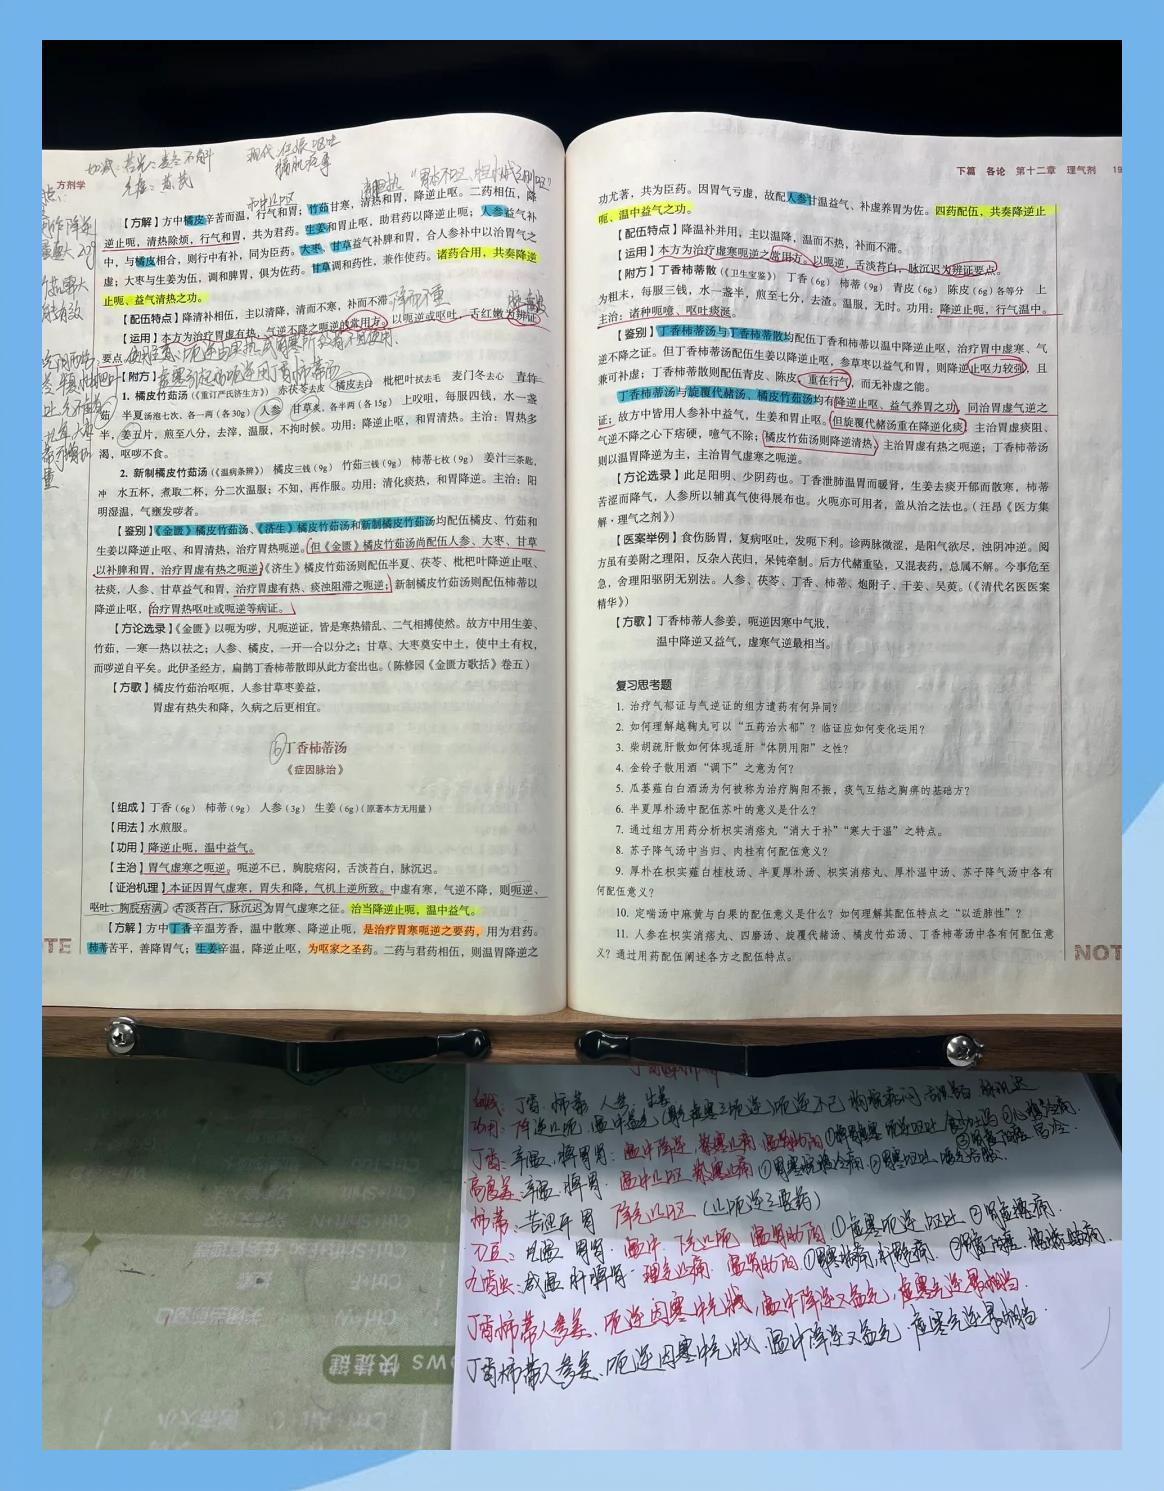 方剂学
【方解】方中橘皮辛苦而温，行气和胃；竹茹甘寒，清热和胃，降逆止呕。二药相伍，降
逆止呃，清热除烦，行气和胃，共为君药。生姜和胃止呕，助君药以降逆止呃；人参益气补
中，与橘皮相合，则行中有补，同为臣药。大枣、甘草益气补脾和胃，合人参补中以治胃气之
虚；大枣与生姜为伍，调和脾胃，俱为佐药。甘草调和药性，兼作使药。诸药合用，共奏降逆
止呃、益气清热之功。
【配伍特点】降清补相伍，主以清降，清而不寒，补而不滞。
【运用】本方为治疗胃虚有热，气逆不降之呃逆的常用方。以呃逆或呕吐，舌红嫩为辨证
要点。
【附方】
1. 橘皮竹茹汤（《重订严氏济生方》） 赤茯苓去皮 橘皮去白 枇杷叶拭去毛 麦门冬去心 青竹
茹 半夏汤泡七次，各一两（各30g） 人参 甘草炙，各半两（各15g） 上㕮咀，每服四钱，水一盏
半，姜五片，煎至八分，去滓，温服，不拘时候。功用：降逆止呕，和胃清热。主治：胃热多
渴，呕哕不食。
2. 新制橘皮竹茹汤（《温病条辨》） 橘皮三钱（9g） 竹茹三钱（9g） 柿蒂七枚（9g） 姜汁三茶匙，
冲 水五杯，煮取二杯，分二次温服；不知，再作服。功用：清化痰热，和胃降逆。主治：阳
明湿温，气壅发哕者。
【鉴别】《金匮》橘皮竹茹汤、《济生》橘皮竹茹汤和新制橘皮竹茹汤均配伍橘皮、竹茹和
生姜以降逆止呕、和胃清热，治疗胃热呃逆。但《金匮》橘皮竹茹汤尚配伍人参、大枣、甘草
以补脾和胃，治疗胃虚有热之呃逆；《济生》橘皮竹茹汤则配伍半夏、茯苓、枇杷叶降逆止呕、
祛痰，人参、甘草益气和胃，治疗胃虚有热、痰浊阻滞之呃逆；新制橘皮竹茹汤则配伍柿蒂以
降逆止呕，治疗胃热呕吐或呃逆等病证。
【方论选录】《金匮》以呃为哕，凡呃逆证，皆是寒热错乱、二气相搏使然。故方中用生姜、
竹茹，一寒一热以祛之；人参、橘皮，一开一合以分之；甘草、大枣奠安中土，使中土有权，
而哕逆自平矣。此伊圣经方，扁鹊丁香柿蒂散即从此方套出也。（陈修园《金匮方歌括》卷五）
【方歌】橘皮竹茹治呕呃，人参甘草枣姜益，
胃虚有热失和降，久病之后更相宜。
⑥丁香柿蒂汤
《症因脉治》
【组成】丁香（6g） 柿蒂（9g） 人参（3g） 生姜（6g）（原著本方无用量）
【用法】水煎服。
【功用】降逆止呃，温中益气。
【主治】胃气虚寒之呃逆。呃逆不已，胸脘痞闷，舌淡苔白，脉沉迟。
【证治机理】本证因胃气虚寒，胃失和降，气机上逆所致。中虚有寒，气逆不降，则呃逆、
呕吐、胸脘痞满。舌淡苔白，脉沉迟为胃气虚寒之征。治当降逆止呃，温中益气。
【方解】方中丁香辛温芳香，温中散寒、降逆止呃，是治疗胃寒呃逆之要药，用为君药。
柿蒂苦平，善降胃气；生姜辛温，降逆止呕，为呕家之圣药。二药与君药相伍，则温胃降逆之
下篇 各论 第十二章 理气剂 19
功尤著，共为臣药。因胃气亏虚，故配人参甘温益气、补虚养胃为佐。四药配伍，共奏降逆止
呃、温中益气之功。
【配伍特点】降温补并用，主以温降，温而不热，补而不滞。
【运用】本方为治疗虚寒呃逆之常用方。以呃逆，舌淡苔白，脉沉迟为辨证要点。
【附方】丁香柿蒂散（《卫生宝鉴》） 丁香（6g） 柿蒂（9g） 青皮（6g） 陈皮（6g）各等分 上
为粗末，每服三钱，水一盏半，煎至七分，去渣。温服，无时。功用：降逆止呃，行气温中。
主治：诸种呃噫、呕吐痰涎。
【鉴别】丁香柿蒂汤与丁香柿蒂散均配伍丁香和柿蒂以温中降逆止呕，治疗胃中虚寒、气
逆不降之证。但丁香柿蒂汤配伍生姜以降逆止呕，参草枣以益气和胃，则降逆止呕力较强，且
兼可补虚；丁香柿蒂散则配伍青皮、陈皮，重在行气，而无补虚之能。
丁香柿蒂汤与旋覆代赭汤、橘皮竹茹汤均有降逆止呕、益气养胃之功，同治胃虚气逆之
证；故方中皆用人参补中益气，生姜和胃止呕。但旋覆代赭汤重在降逆化痰，主治胃虚痰阻、
气逆不降之心下痞硬，噫气不除；橘皮竹茹汤则降逆清热，主治胃虚有热之呃逆；丁香柿蒂汤
则以温胃降逆为主，主治胃气虚寒之呃逆。
【方论选录】此足阳明、少阴药也。丁香泄肺温胃而暖肾，生姜去痰开郁而散寒，柿蒂
苦涩而降气，人参所以辅真气使得展布也。火呃亦可用者，盖从治之法也。（汪昂《医方集
解·理气之剂》）
【医案举例】食伤肠胃，复病呕吐，发呃下利。诊两脉微涩，是阳气欲尽，浊阴冲逆。阅
方虽有姜附之理阳，反杂入芪归，呆钝牵制。后方代赭重坠，又混表药，总属不解。今事危至
急，舍理阳驱阴无别法。人参、茯苓、丁香、柿蒂、炮附子、干姜、吴萸。（《清代名医医案
精华》）
【方歌】丁香柿蒂人参姜，呃逆因寒中气戕，
温中降逆又益气，虚寒气逆最相当。
复习思考题
1. 治疗气郁证与气逆证的组方遣药有何异同？
2. 如何理解越鞠丸可以“五药治六郁”？临证应如何变化运用？
3. 柴胡疏肝散如何体现适肝“体阴用阳”之性？
4. 金铃子散用酒“调下”之意为何？
5. 瓜蒌薤白白酒汤为何被称为治疗胸阳不振，痰气互结之胸痹的基础方？
6. 半夏厚朴汤中配伍苏叶的意义是什么？
7. 通过组方用药分析枳实消痞丸“消大于补”“寒大于温”之特点。
8. 苏子降气汤中当归、肉桂有何配伍意义？
9. 厚朴在枳实薤白桂枝汤、半夏厚朴汤、枳实消痞丸、厚朴温中汤、苏子降气汤中各有
何配伍意义？
10. 定喘汤中麻黄与白果的配伍意义是什么？如何理解其配伍特点之“以适肺性”？
11. 人参在枳实消痞丸、四磨汤、旋覆代赭汤、橘皮竹茹汤、丁香柿蒂汤中各有何配伍意
义？通过用药配伍阐述各方之配伍特点。
NOT
丁香 柿蒂 人参 生姜
功用：降逆止呃 温中益气（胃气虚寒之呃逆）呃逆不已 胸脘痞闷 舌淡苔白 脉沉迟
丁香：辛温、脾胃肾：温中降逆，散寒止痛 温肾助阳
高良姜：辛温 脾胃 温中止呕 散寒止痛
柿蒂：苦涩平 胃 降气止呃（止呃逆之要药）
刀豆：甘温 胃肾 温中 降气止呃 温肾助阳 ①虚寒呃逆呕吐 ②肾虚腰痛
九香虫：咸温 肝脾肾 理气止痛 温肾助阳
丁香柿蒂人参姜，呃逆因寒中气戕，温中降逆又益气，虚寒气逆最相当
丁香柿蒂人参姜、呃逆因寒中气戕、温中降逆又益气、虚寒气逆最相当
快捷键